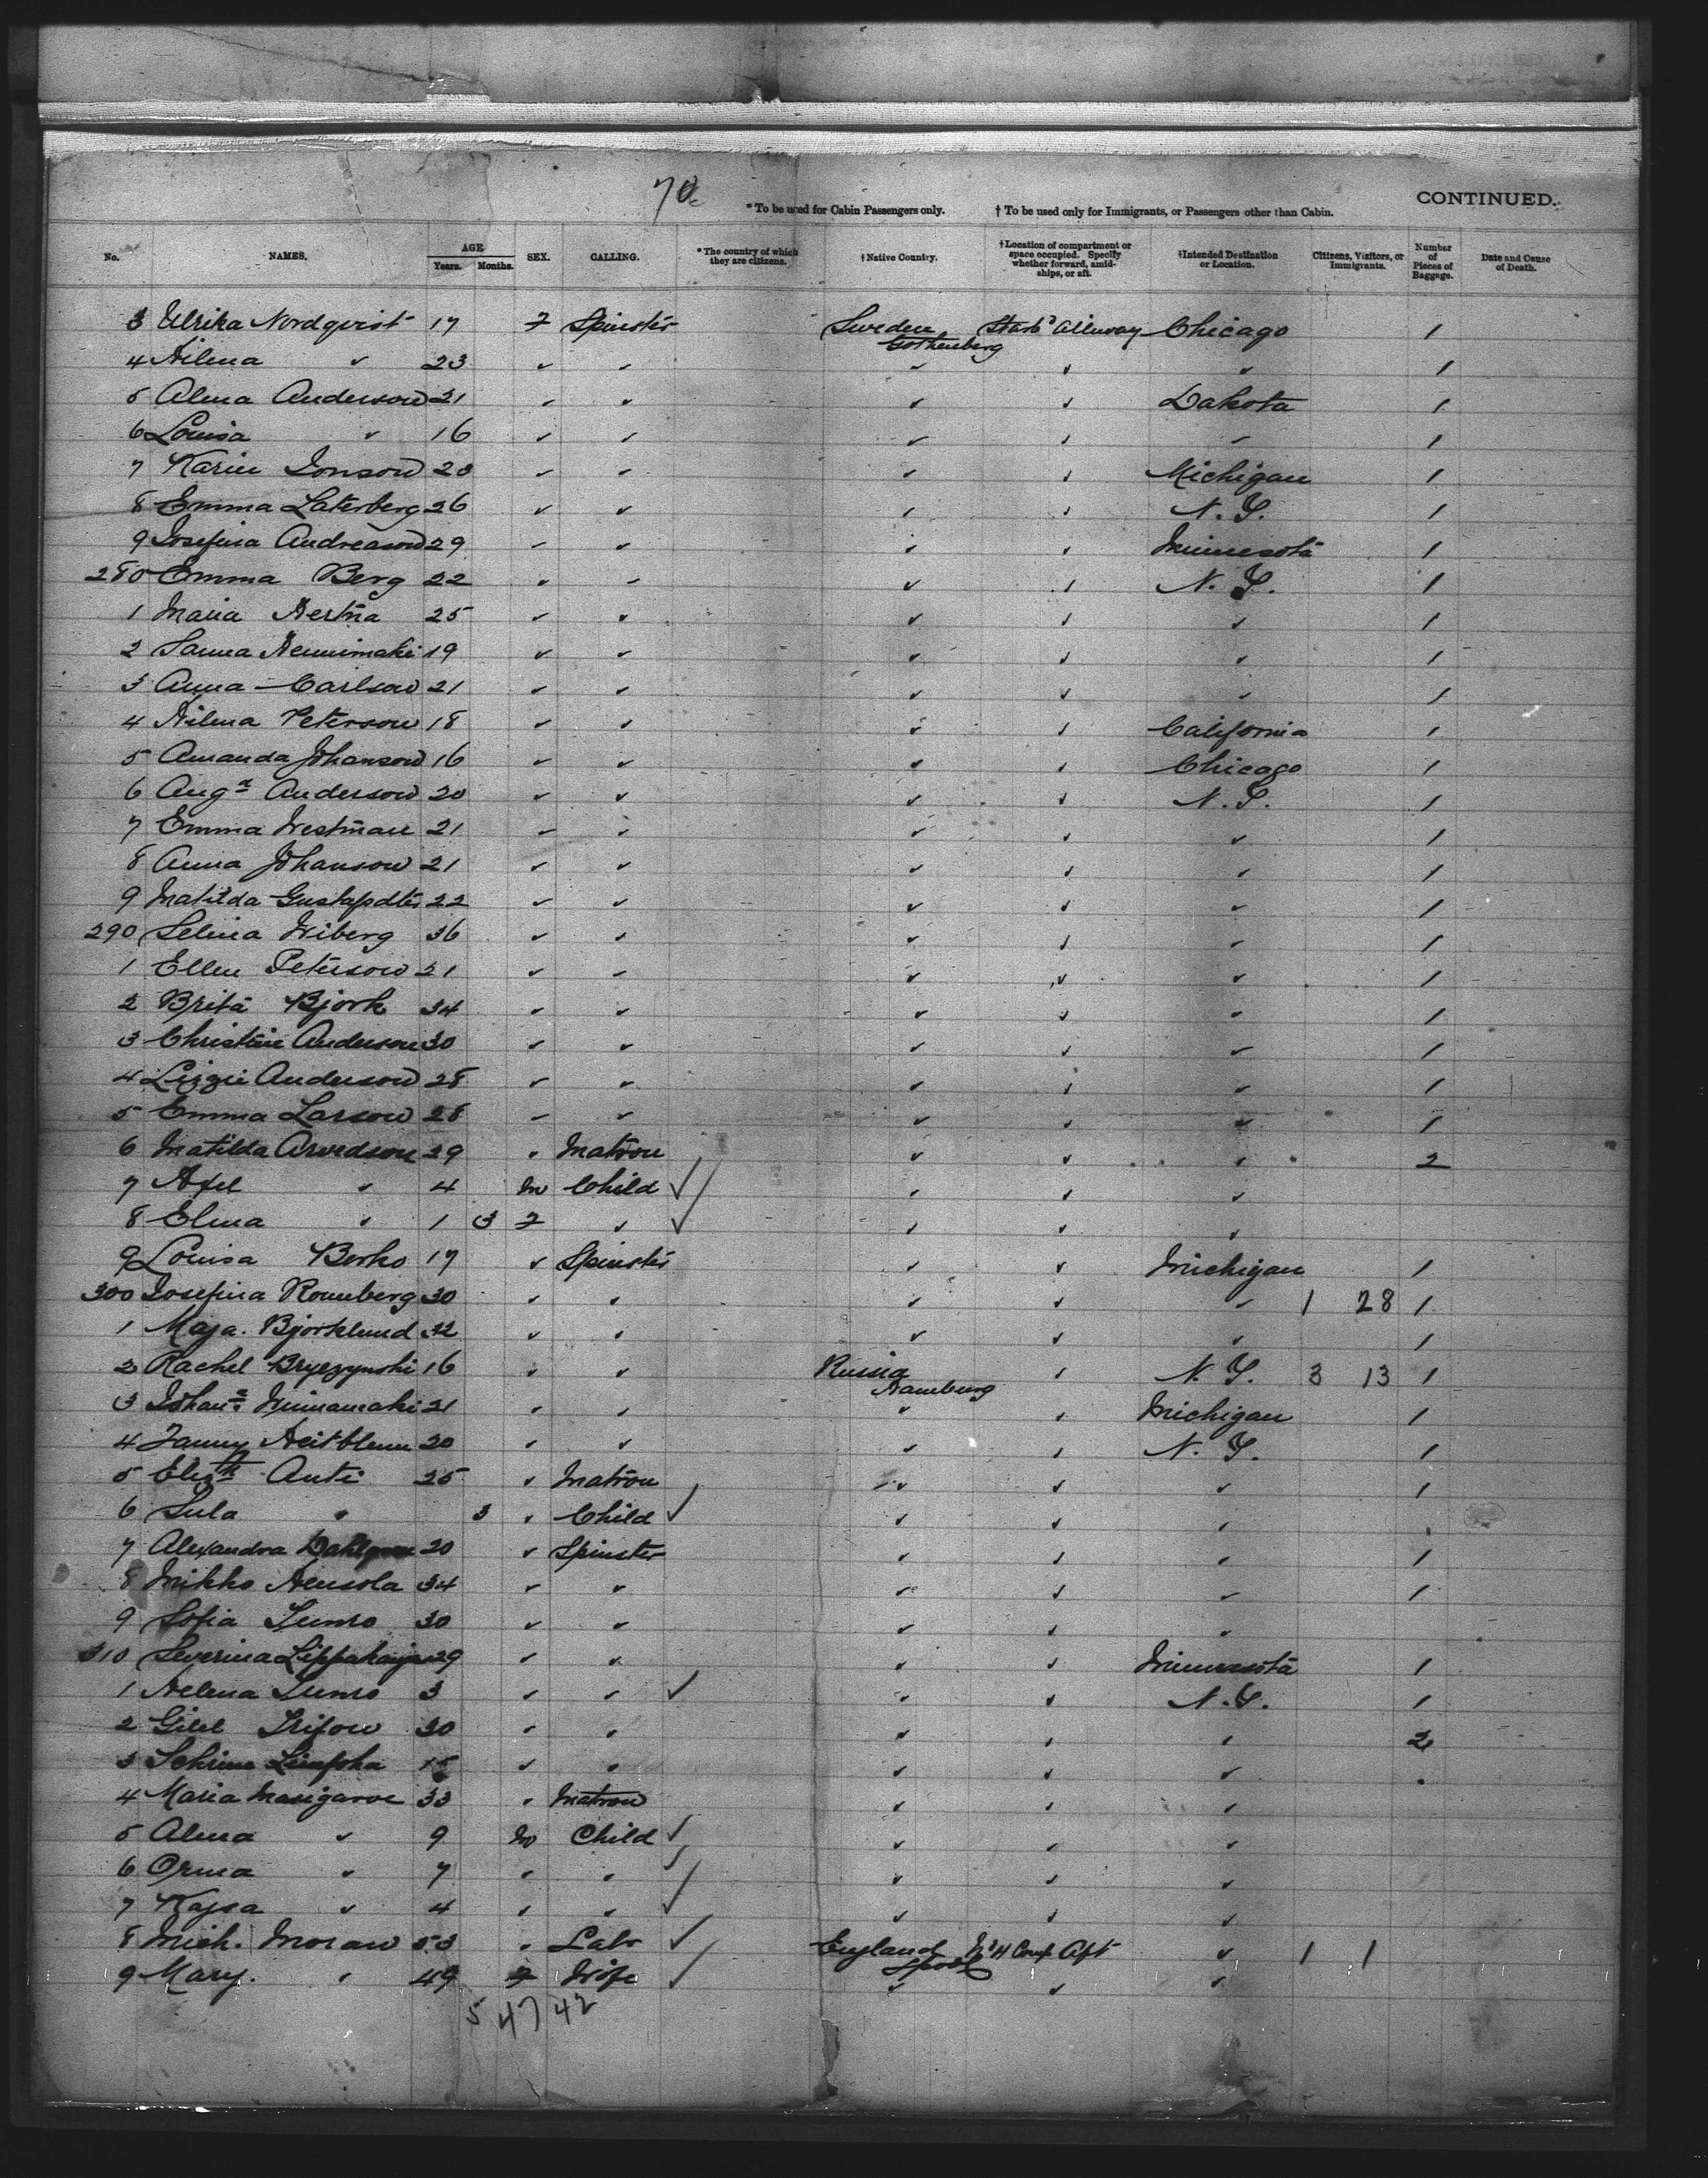 70
* To be used for Cabin Passengers only. † To be used only for Immigrants, or Passengers other than Cabin. CONTINUED.
No. NAMES. AGE Years. Months. SEX. CALLING. * The country of which they are citizens. † Native Country. † Location of compartment or space occupied. Specify whether forward, amid-ships, or aft. † Intended Destination or Location. Citizens, Visitors, or Immigrants. Number of Pieces of Baggage. Date and Cause of Death.
3 Ulrika Nordqvist 17 F Spinster Sweden Gothenberg Starbd Alleway Chicago 1
4 Hilma " 23 " " " " " 1
5 Alma Anderson 21 " " " " Dakota 1
6 Louisa " 16 " " " " " 1
7 Karin Jonson 20 " " " " Michigan 1
8 Emma Laterberg 26 " " " " N.Y. 1
9 Josefina Andreason 29 " " " " Minnesota 1
280 Emma Berg 22 " " " " N.Y. 1
1 Maria 25 " " " " " 1
2 Sanna 19 " " " " " 1
3 Anna Carlson 21 " " " " " 1
4 Hilma Peterson 18 " " " " California 1
5 Amanda Johanson 16 " " " " Chicago 1
6 Auga Anderson 20 " " " " N.Y. 1
7 Emma Westman 21 " " " " " 1
8 Anna Johanson 21 " " " " " 1
9 Matilda Gustafsdtr 22 " " " " " 1
290 Selma Wiberg 36 " " " " " 1
1 Ellen Peterson 21 " " " " " 1
2 Brita Bjork 34 " " " " " 1
3 Christine Anderson 30 " " " " " 1
4 Lizzie Anderson 28 " " " " " 1
5 Emma Larson 28 " " " " " 1
6 Matilda Arvedson 29 " Matron " " " 2
7 Axel " 4 M Child " " "
8 Elma " 1 3 F " " " "
9 Louisa Berko 17 " Spinster " " Michigan 1
300 Josefina Ronnberg 30 " " " " " 1 28 1
1 Maja. Bjorklund 32 " " " " " 1
2 Rachel 16 " " Russia Hamburg " N.Y. 3 13 1
3 Johana 21 " " " " Michigan 1
4 Fanny 20 " " " " N.Y. 1
5 Elizth Anti 25 " Matron " " " 1
6 Sula " 3 " Child " " "
7 Alexandra 20 " Spinster " " " 1
8 Mikko 34 " " " " " 1
9 Sofia 30 " " " " "
310 Severina 29 " " " " Minnesota 1
1 Helena 3 " " " " N.Y. 1
2 30 " " " " " 2
3 " " " " "
4 Maria 33 " Matron " " "
5 Alma " 9 M Child " " "
6 Orma " 7 " " " " "
7 Kajsa " 4 " " " " "
8 Mich. Moran 53 " Labr England Lpool Aft " 1 1
9 Mary. " 49 F Wife " " "
5 47 42